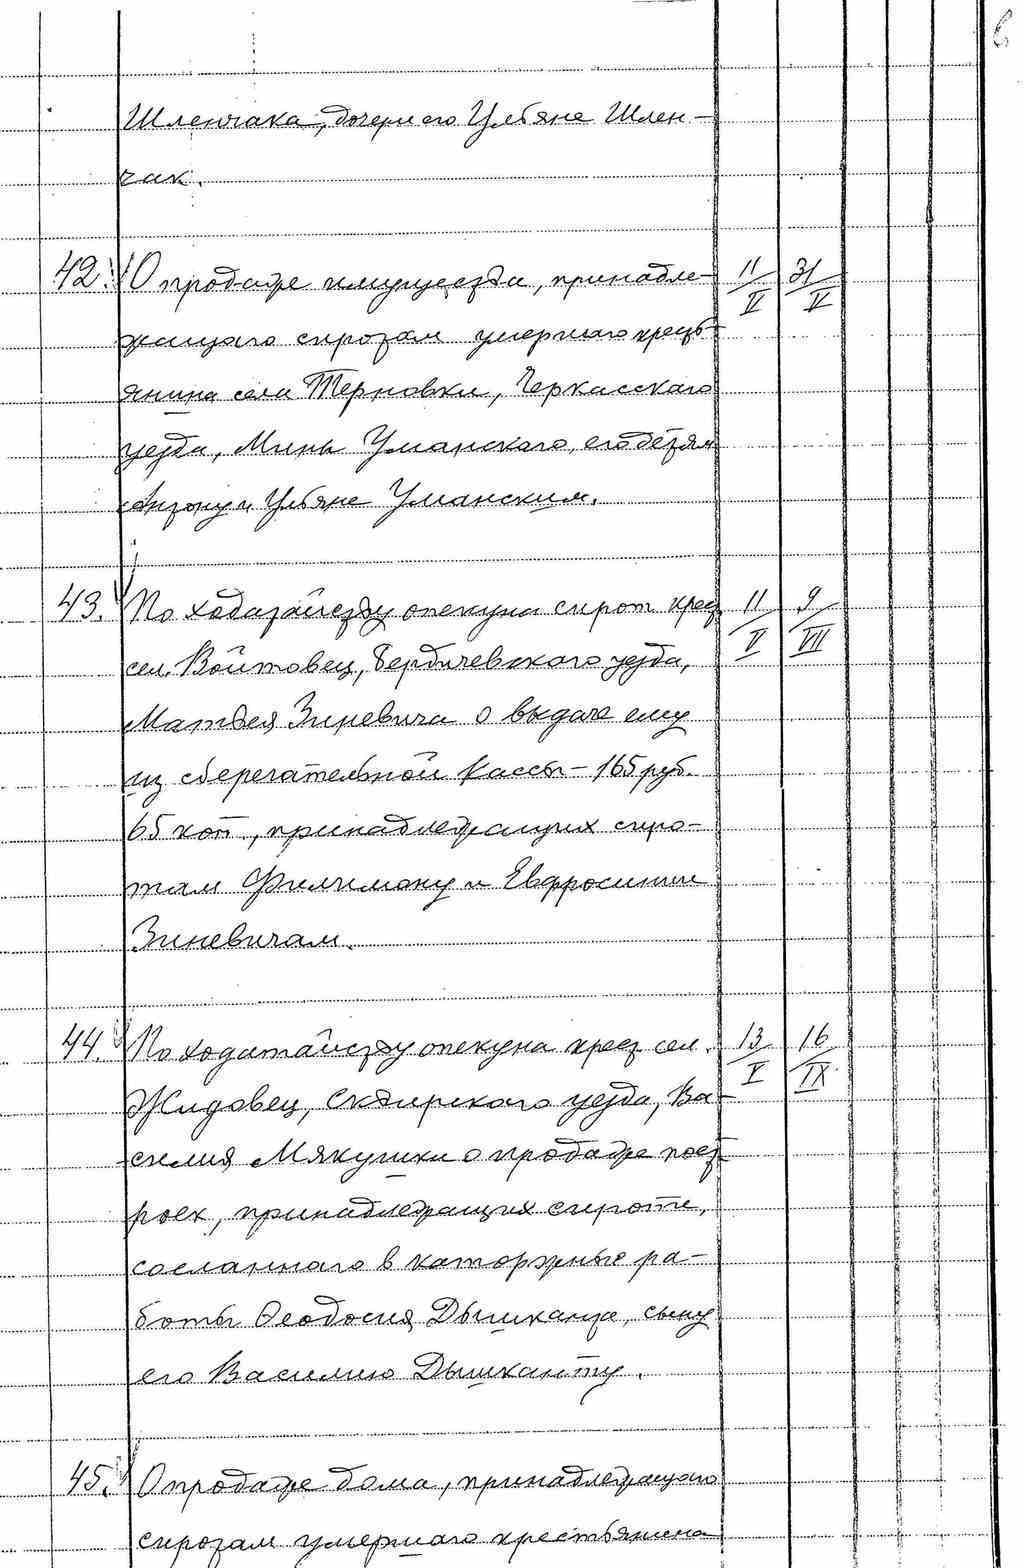 Шленчака, дочери его Ульяне Шлен-
чак.
42. О продаже имущества, принадле- 11/V 31/V
жащаго сиротам умершаго кресть-
янина села Терновки, Черкасскаго
уезда, Мины Уманскаго, его детям
Антону и Ульяне Уманским.
43. По ходатайству опекуна сирот крест. 11/V 9/VII
сел. Войтовец, Бердичевского уезда,
Матвея Зиневича о выдаче ему
из сберегательной кассы - 165 руб.
65 коп., принадлежащих сиро-
там Филимону и Евфросинии
Зиневичам.
44. По ходатайству опекуна крест. сел. 13/V 16/IX
Жидовец, Сквирского уезда, Ва-
силия Мякушки о продаже пост-
роек, принадлежащих сироте,
сосланнаго в каторжные ра-
боты Феодосия Дышканта, сыну
его Василию Дышканту.
45. О продаже дома, принадлежащаго
сиротам умершаго крестьянина